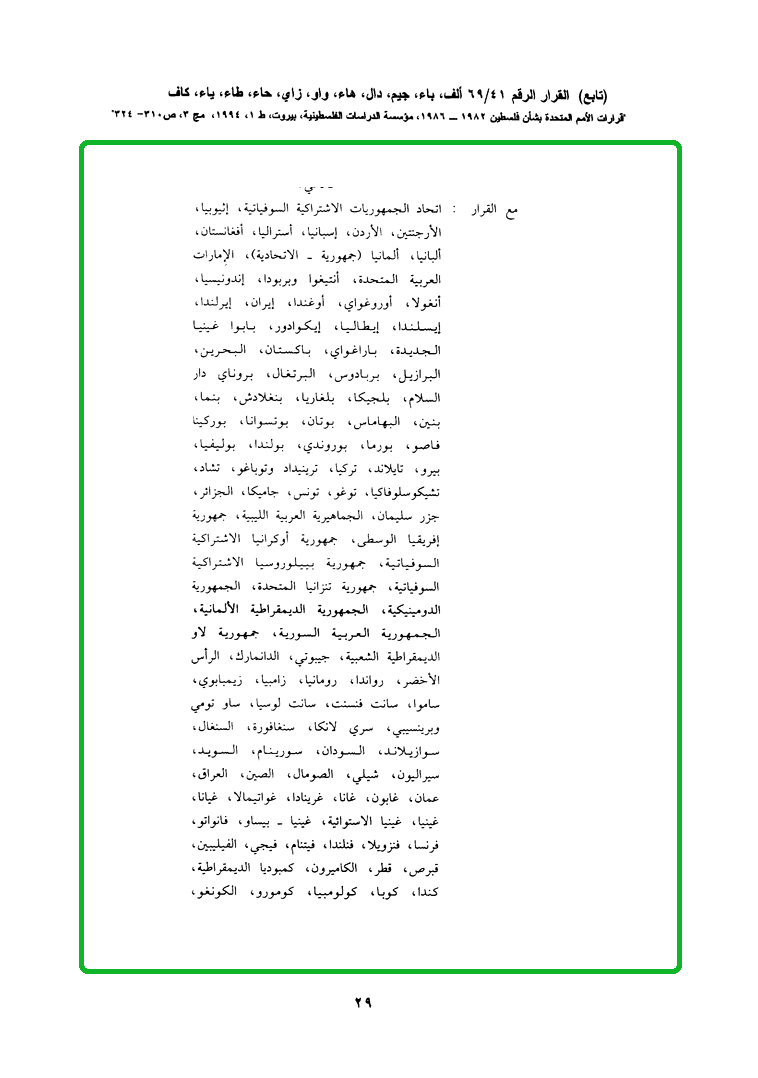 (تابع) القرار الرقم ٦٩/٤١ ألف، باء، جيم، دال، هاء، واو، زاي، حاء، طاء، ياء، كاف
"قرارات الأمم المتحدة بشأن فلسطين ١٩٨٢ ــ ١٩٨٦، مؤسسة الدراسات الفلسطينية، بيروت، ط ١، ١٩٩٤، مج ٣، ص٣١٠- ٣٢٤"
مع القرار : اتحاد الجمهوريات الاشتراكية السوفياتية، إثيوبيا،
الأرجنتين، الأردن، إسبانيا، أستراليا، أفغانستان،
ألبانيا، ألمانيا (جمهورية ـ الاتحادية)، الإمارات
العربية المتحدة، أنتيغوا وبربودا، إندونيسيا،
أنغولا، أوروغواي، أوغندا، إيران، إيرلندا،
إيسلندا، إيطاليا، إيكوادور، بابوا غينيا
الجديدة، باراغواي، باكستان، البحرين،
البرازيل، بربادوس، البرتغال، بروناي دار
السلام، بلجيكا، بلغاريا، بنغلادش، بنما،
بنين، البهاماس، بوتان، بوتسوانا، بوركينا
فاصو، بورما، بوروندي، بولندا، بوليفيا،
بيرو، تايلاند، تركيا، ترينيداد وتوباغو، تشاد،
تشيكوسلوفاكيا، توغو، تونس، جاميكا، الجزائر،
جزر سليمان، الجماهيرية العربية الليبية، جمهورية
إفريقيا الوسطى، جمهورية أوكرانيا الاشتراكية
السوفياتية، جمهورية بييلوروسيا الاشتراكية
السوفياتية، جمهورية تنزانيا المتحدة، الجمهورية
الدومينيكية، الجمهورية الديمقراطية الألمانية،
الجمهورية العربية السورية، جمهورية لاو
الديمقراطية الشعبية، جيبوتي، الدانمارك، الرأس
الأخضر، رواندا، رومانيا، زامبيا، زيمبابوي،
ساموا، سانت فنسنت، سانت لوسيا، ساو تومي
وبرينسيبي، سري لانكا، سنغافورة، السنغال،
سوازيلاند، السودان، سورينام، السويد،
سيراليون، شيلي، الصومال، الصين، العراق،
عمان، غابون، غانا، غرينادا، غواتيمالا، غيانا،
غينيا، غينيا الاستوائية، غينيا ـ بيساو، فانواتو،
فرنسا، فنزويلا، فنلندا، فيتنام، فيجي، الفيليبين،
قبرص، قطر، الكاميرون، كمبوديا الديمقراطية،
كندا، كوبا، كولومبيا، كومورو، الكونغو،
٢٩